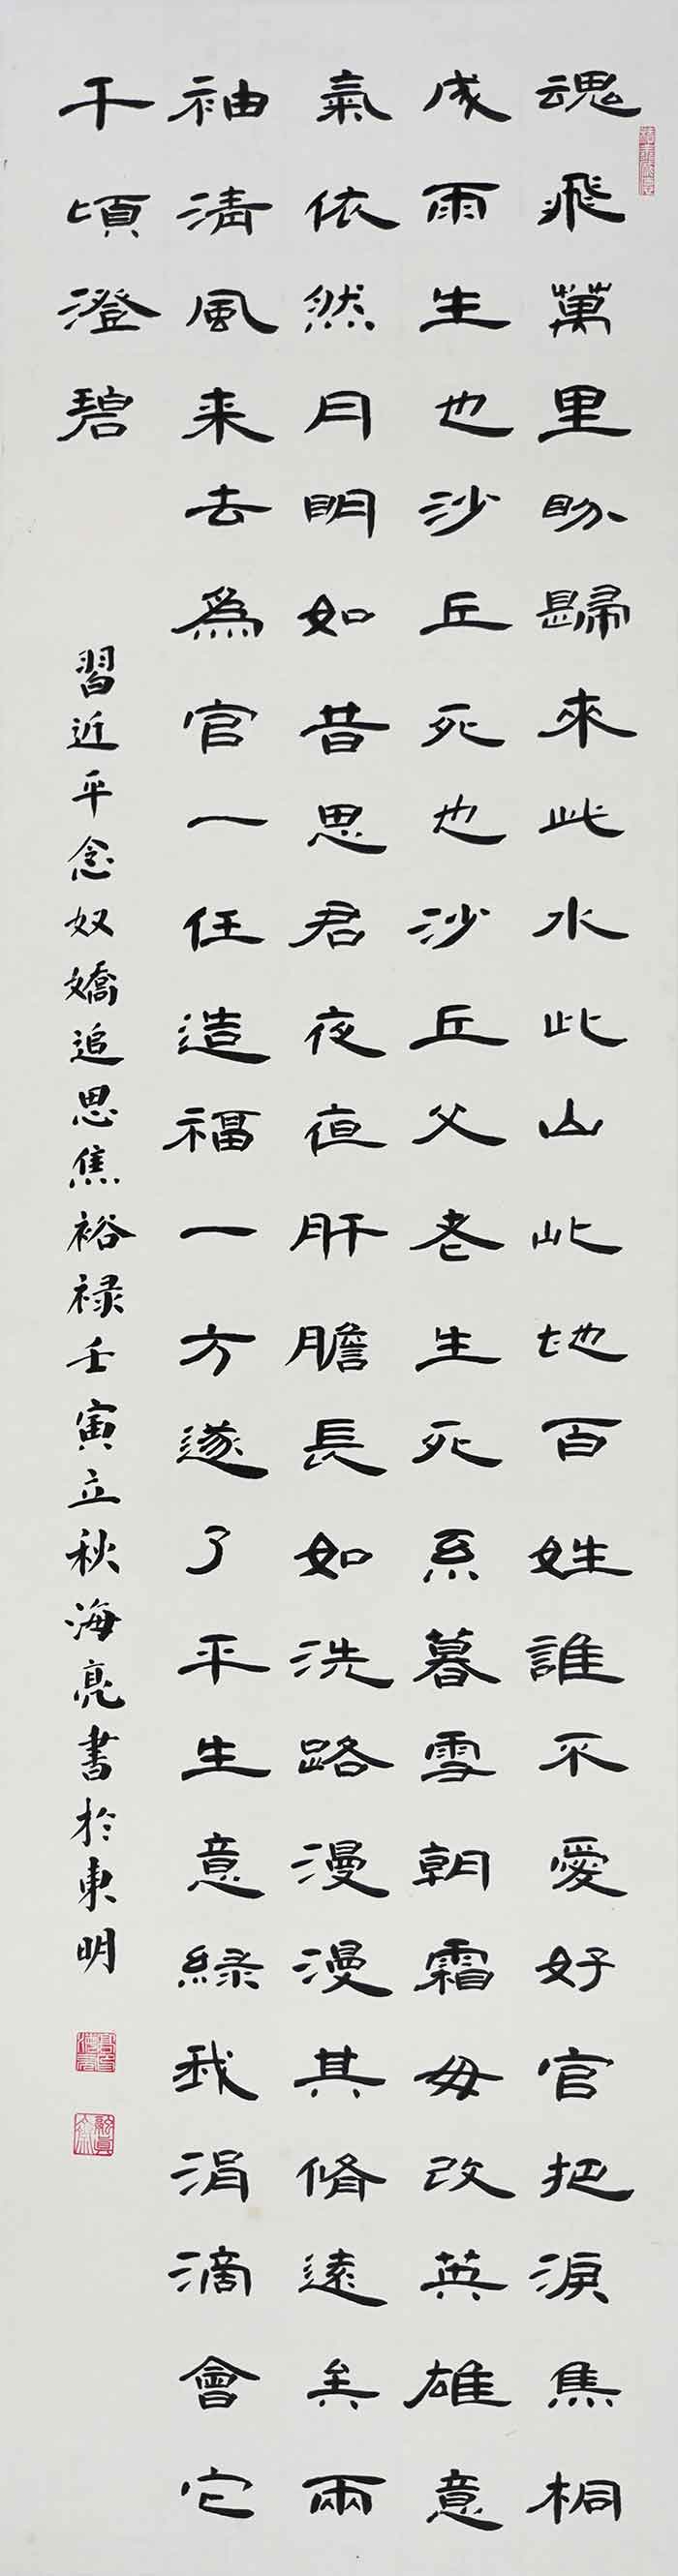 魂飛萬里盼歸來此水此山此地百姓誰不愛好官把淚焦桐
成雨生也沙丘死也沙丘父老生死系暮雪朝霜毋改英雄意
氣依然月明如昔思君夜夜肝膽長如洗路漫漫其脩遠矣兩
袖清風来去為官一任造福一方遂了平生意綠我涓滴會它
千頃澄碧
習近平念奴嬌追思焦裕禄壬寅立秋海亮書於東明